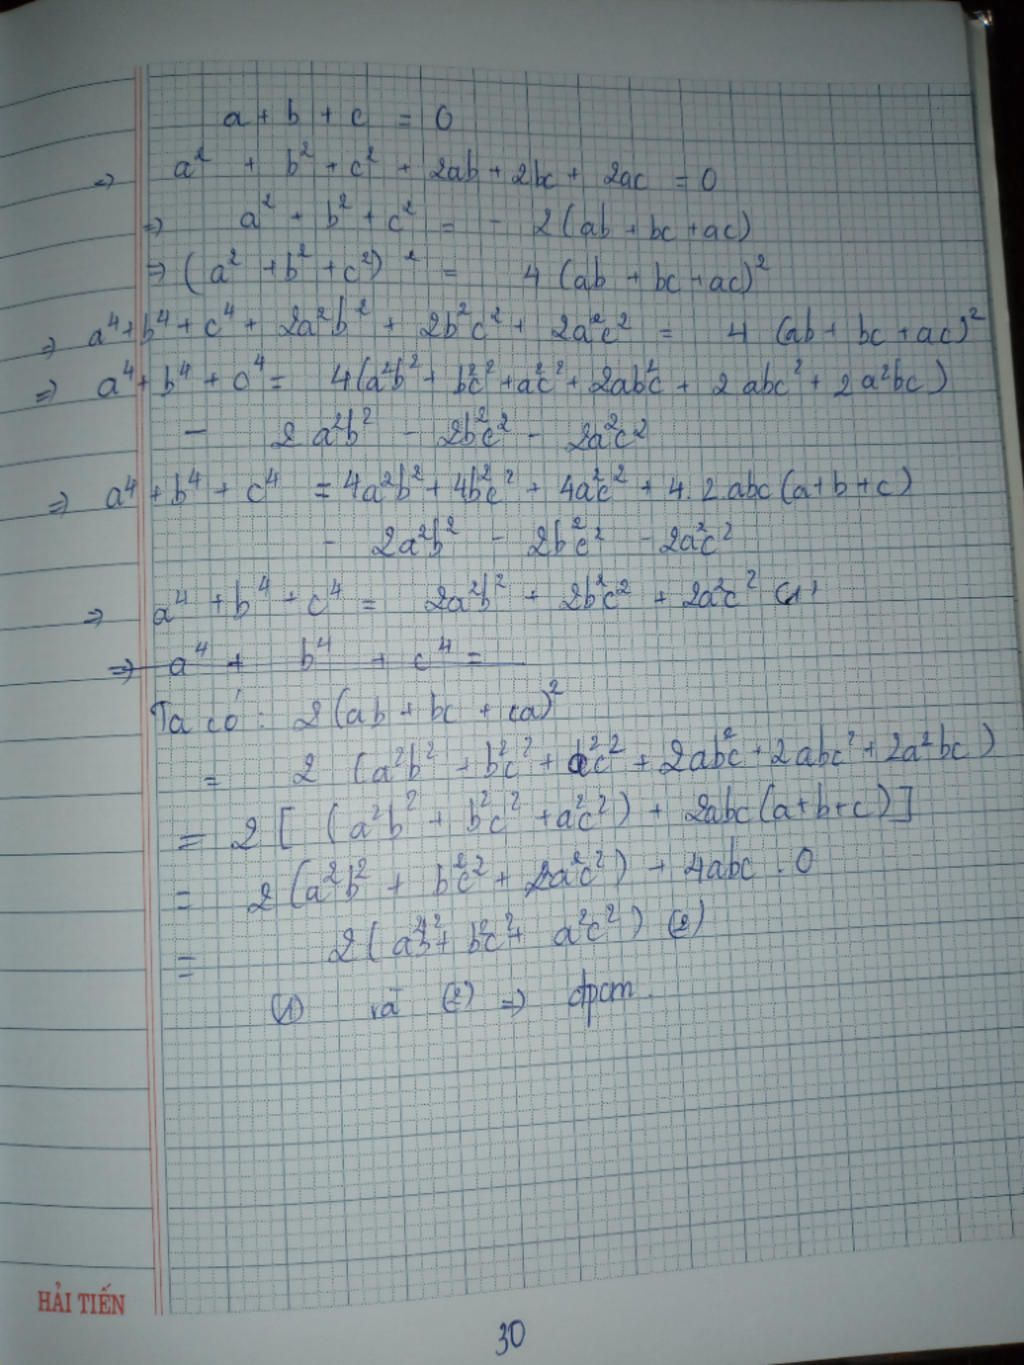 a + b + c = 0
⇒ a² + b² + c² + 2ab + 2bc + 2ac = 0
⇒ a² + b² + c² = - 2(ab + bc + ac)
⇒ (a² + b² + c²)² = 4 (ab + bc + ac)²
⇒ a⁴ + b⁴ + c⁴ + 2a²b² + 2b²c² + 2a²c² = 4 (ab + bc + ac)²
⇒ a⁴ + b⁴ + c⁴ = 4(a²b² + b²c² + a²c² + 2ab²c + 2abc² + 2a²bc)
- 2a²b² - 2b²c² - 2a²c²
⇒ a⁴ + b⁴ + c⁴ = 4a²b² + 4b²c² + 4a²c² + 4.2abc(a+b+c)
- 2a²b² - 2b²c² - 2a²c²
⇒ a⁴ + b⁴ + c⁴ = 2a²b² + 2b²c² + 2a²c² (1)
⇒ a⁴ + b⁴ + c⁴ =
Ta có: 2(ab + bc + ca)²
= 2 (a²b² + b²c² + a²c² + 2ab²c + 2abc² + 2a²bc)
= 2 [ (a²b² + b²c² + a²c²) + 2abc(a+b+c)]
= 2(a²b² + b²c² + a²c²) + 4abc . 0
= 2(a²b² + b²c² + a²c²) (2)
(1) và (2) ⇒ đpcm.
HẢI TIẾN
30